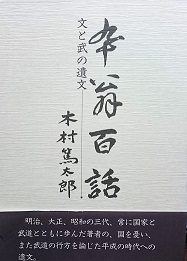 卆翁百話
文と武の遺文
木村篤太郎
明治、大正、昭和の三代、常に国家と
武道とともに歩んだ著者の、国を憂い、
また武道の行方を論じた平成の時代への
遺文。